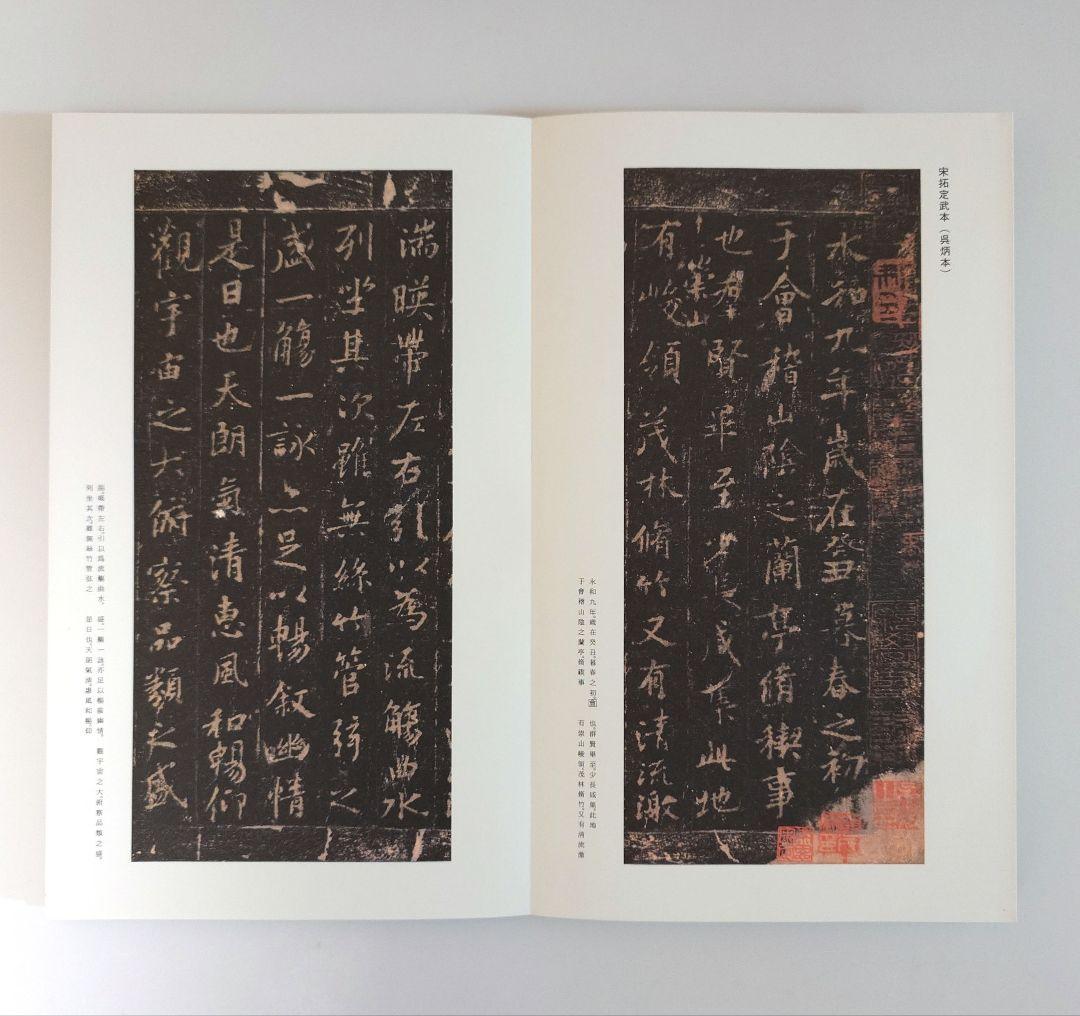 宋拓定武本（吳炳本）
永和九年歲在癸丑暮春之初
于會稽山陰之蘭亭脩稧事
也群賢畢至少長咸集此地
有崇山峻領茂林脩竹又有清流激
永和九年，歲在癸丑，暮春之初，會
于會稽山陰之蘭亭，脩稧事
也。群賢畢至，少長咸集。此地
有崇山峻領，茂林脩竹，又有清流激
湍暎帶左右引以為流觴曲水
列坐其次雖無絲竹管弦之
盛一觴一詠亦足以暢叙幽情
是日也天朗氣清惠風和暢仰
觀宇宙之大俯察品類之盛
湍，暎帶左右，引以爲流觴曲水，
列坐其次。雖無絲竹管弦之
盛，一觴一詠，亦足以暢叙幽情。
是日也，天朗氣清，惠風和暢，仰
觀宇宙之大，俯察品類之盛，